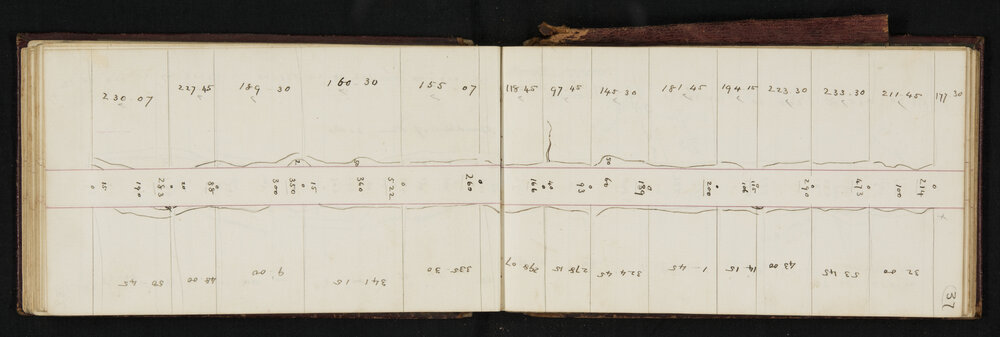 230-07 227 45 189-30 160-30 155-07 118 45 97 45 145 30 181-45 194.15 223.30 233-30 211-45 177 30
2 50
0 15 190 283 0 20 88 300 350 0 15 360 522 0 260 0 166 0 40 93 0 60 189 0 200 0 106 0 290 0 473 0 100 214 0
50-45 48 00 9.00 341-15 335-30 298 07 278 15 324 45 1-45 14.15 43 00 53 45 32 00
37